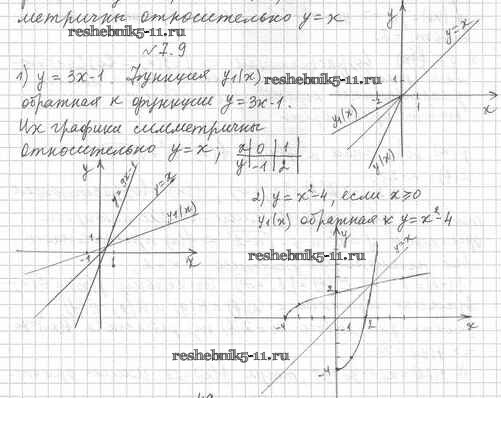 метричны относительно y=x
reshebnik5-11.ru
№7.9
1) y = 3x-1. Функция y₁(x)
reshebnik5-11.ru
обратная к функции y=3x-1.
Их графики симметричны
относительно y=x;
x | 0 | 1
y | -1 | 2
y
y=x
1
-2
1
-1
x
y₁(x)
y(x)
y
y=3x-1
y=x
y₁(x)
1
-1
1
x
2) y=x²-4, если x≥0
y₁(x) обратная к y=x²-4
reshebnik5-11.ru
y
y=x
2
-4
-1
2
x
-4
reshebnik5-11.ru